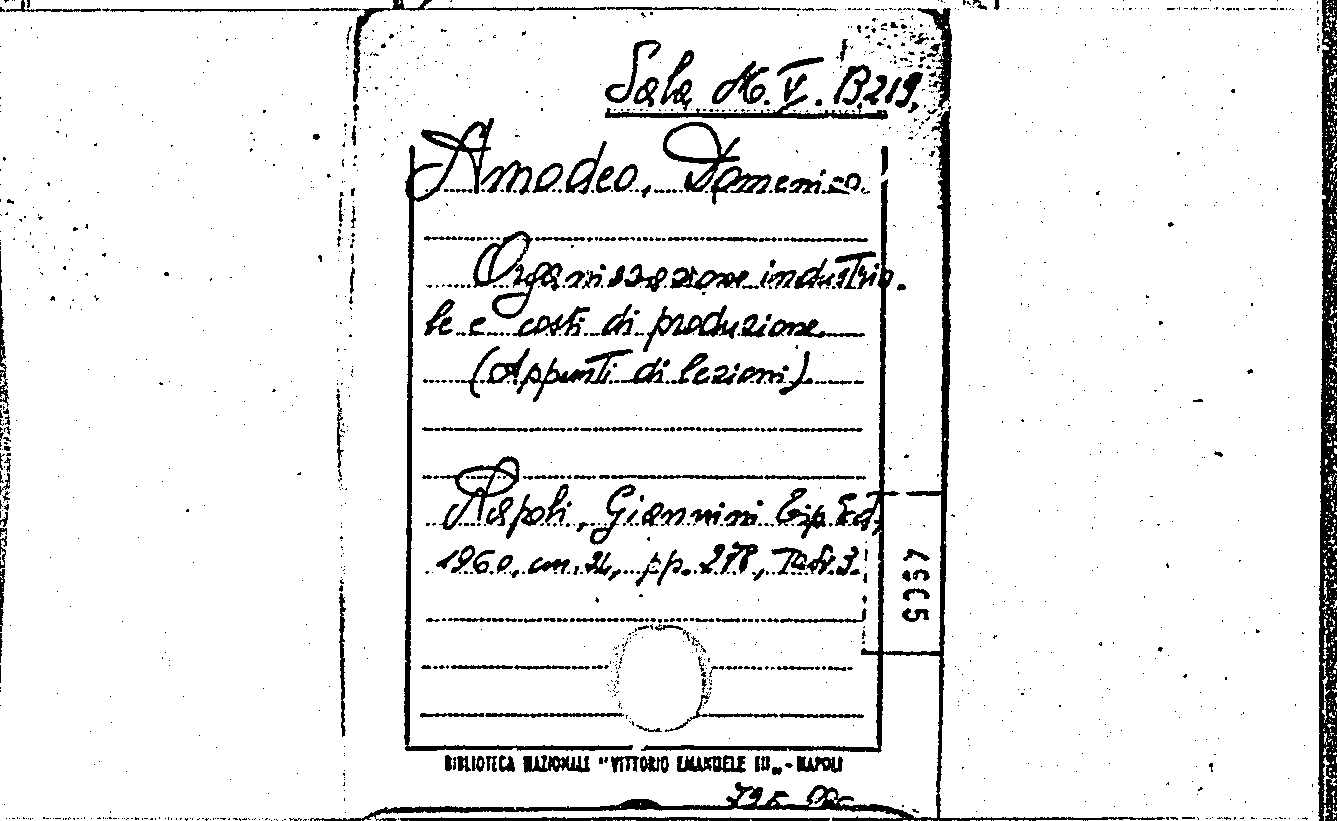 Sala M. V. B219.
Amodeo, Domenico
Organizzazione industria-
le e costi di produzione
(Appunti di lezioni)
Napoli, Giannini Tip. Ed.,
1960, cm. 24, pp. 278, Tav. 3.
BIBLIOTECA NAZIONALE "VITTORIO EMANUELE III„ - NAPOLI